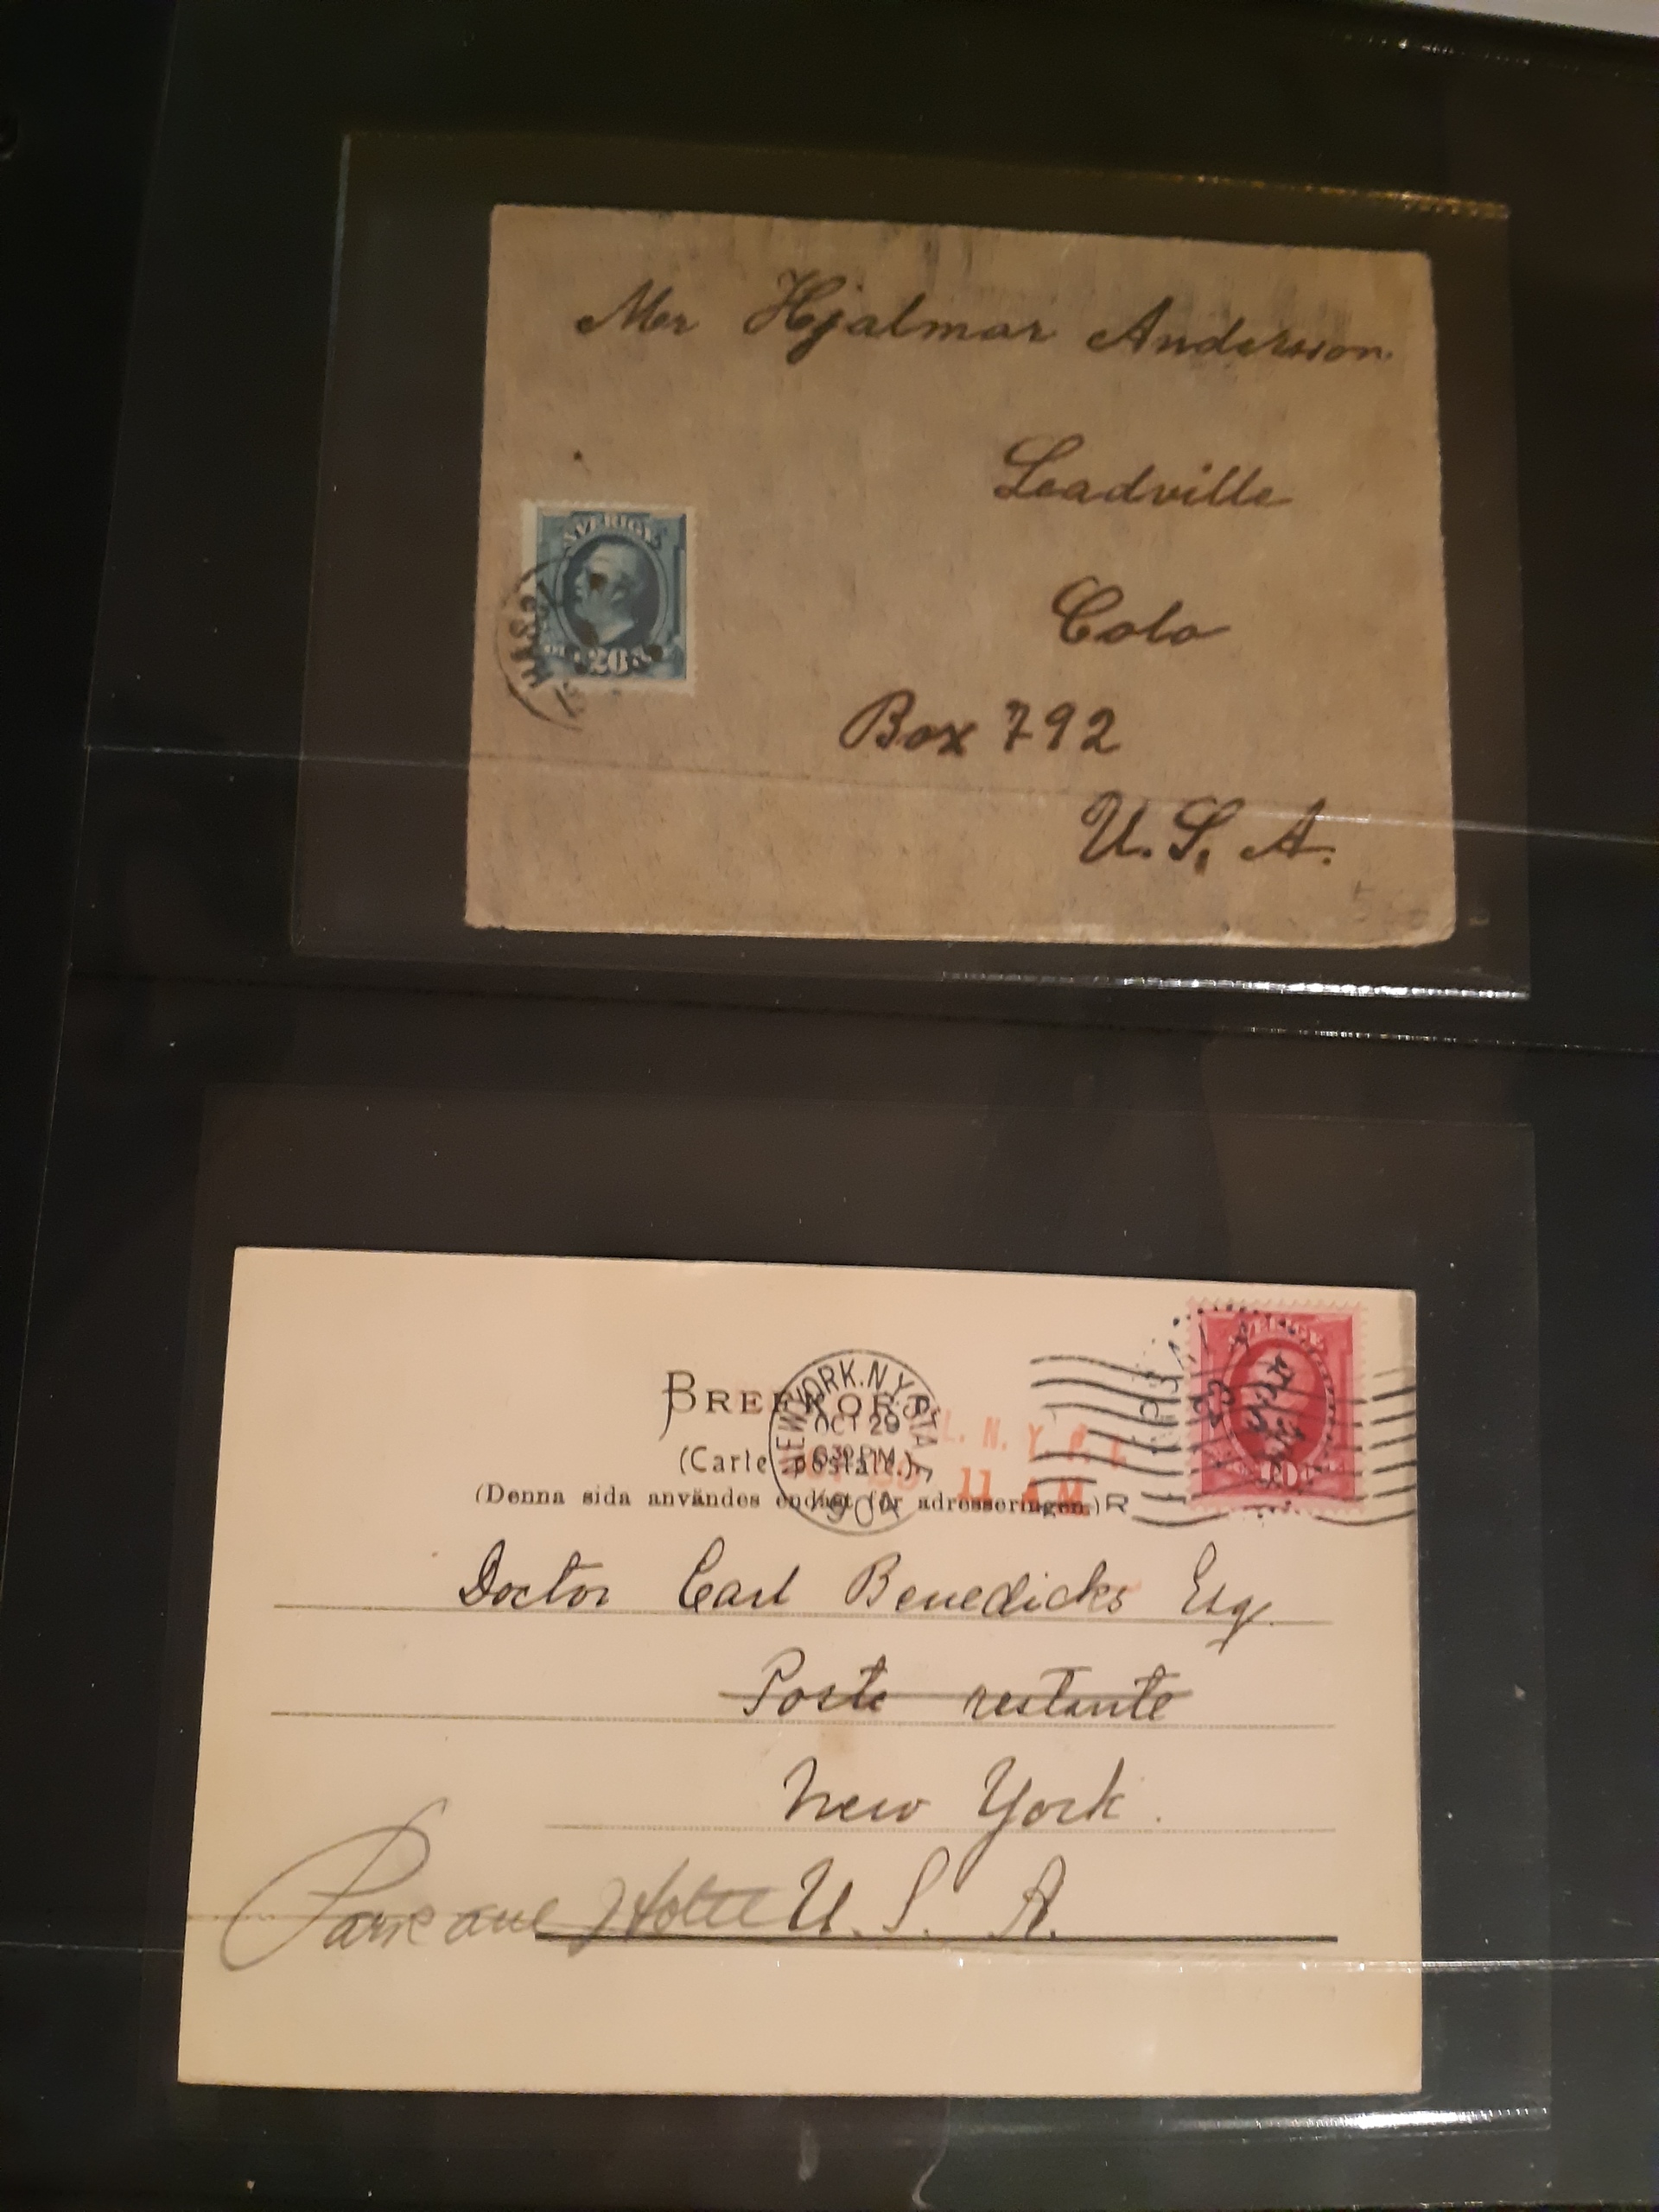 Mr Hjalmar Andersson.
Leadville
Colo
Box 792
U.S.A.
SVERIGE
20
BREFKORT
(Carte postale.)
(Denna sida användes endast för adresseringen.)
NEW YORK.N.Y. STA.
OCT 29
630 PM
1904
L. N. Y. P. O.
11 AM
R
SVERIGE
10
Doctor Carl Benedicks Esq.
Poste restante
New York.
U. S. A.